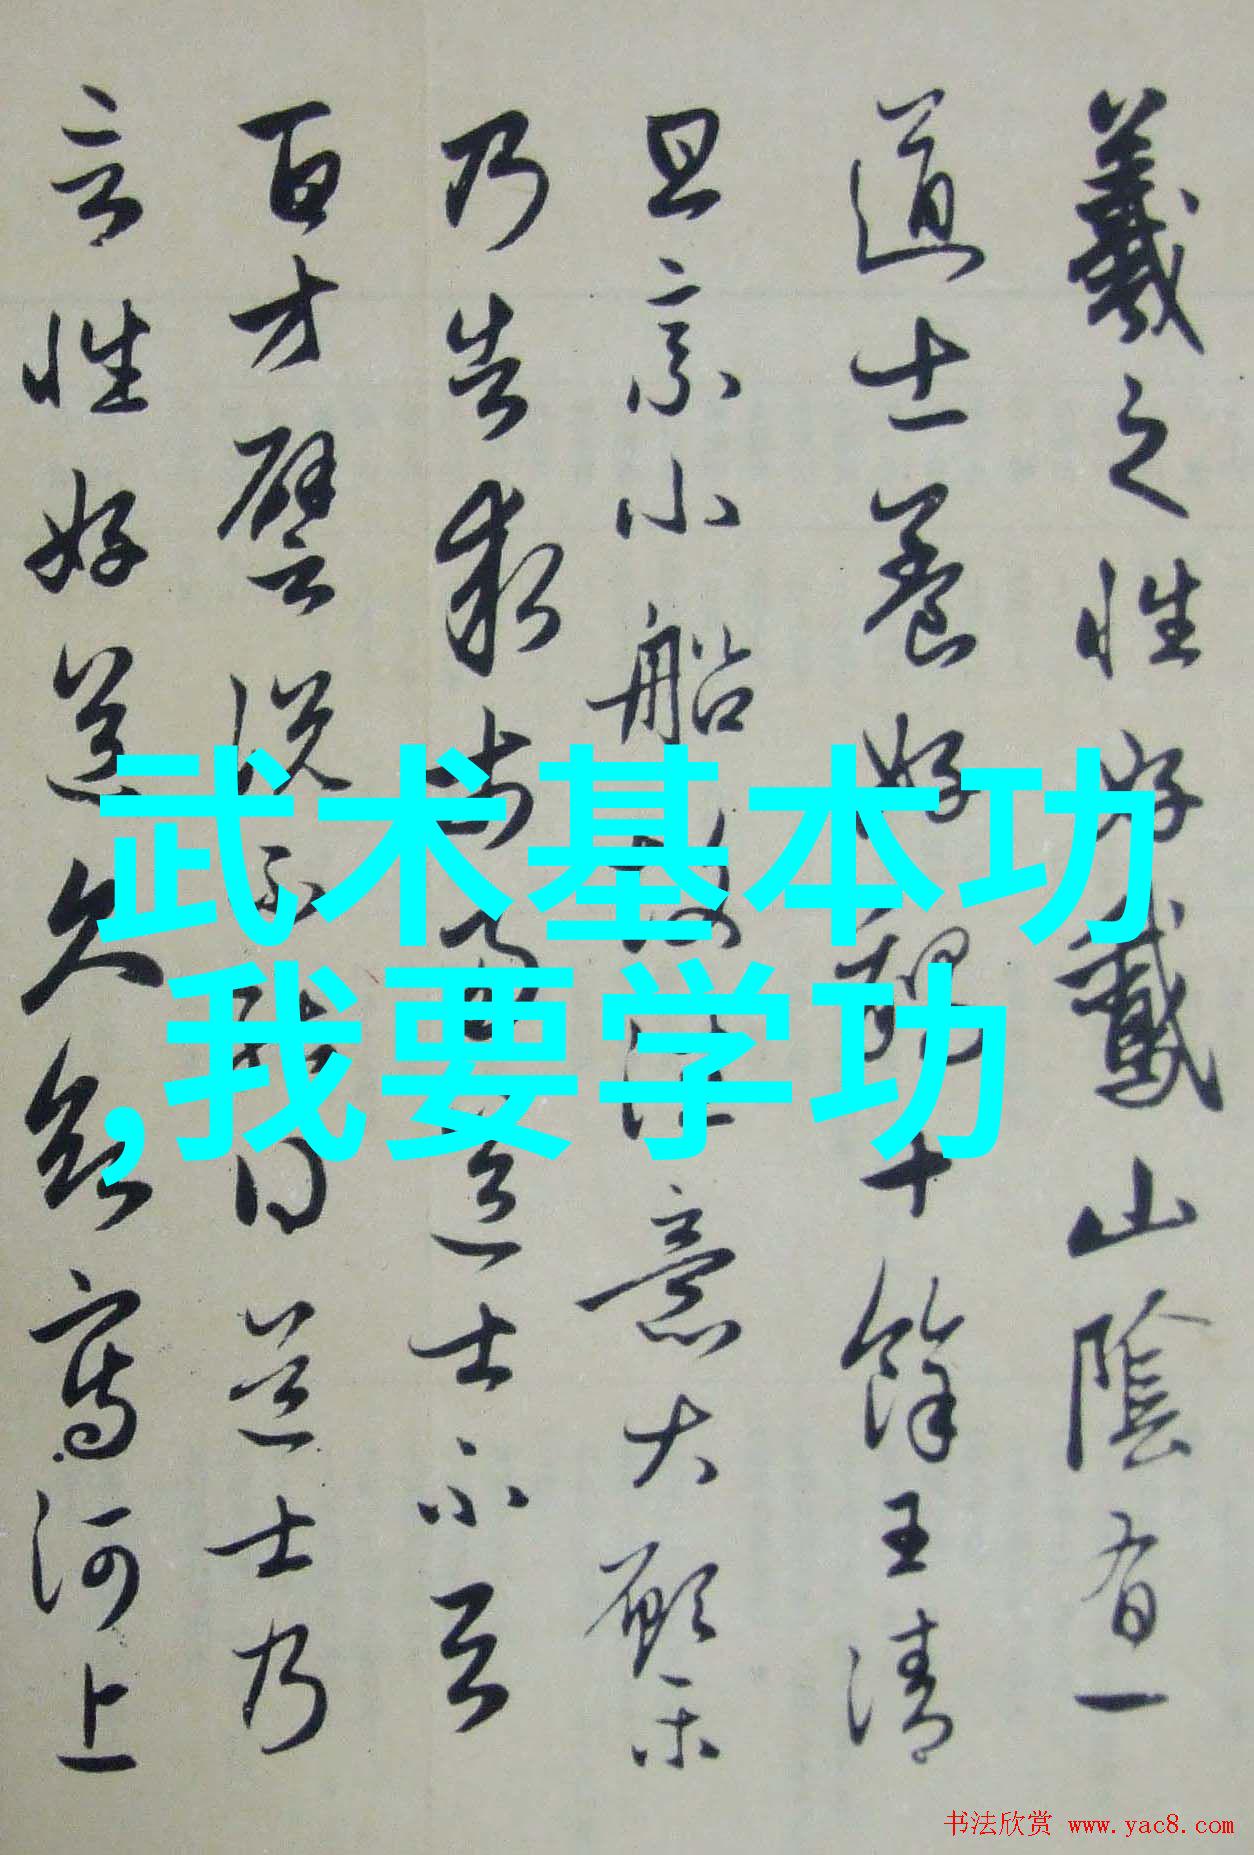 羲之性好鵞山陰有一
道士養好鵝十餘王清
旦乘小船故往意大願樂
乃告求市易道士不与
百方譬說不能得道士乃
言性好道久欲寫河上
武术基本功
,我要学功
书法欣赏 www.yac8.com